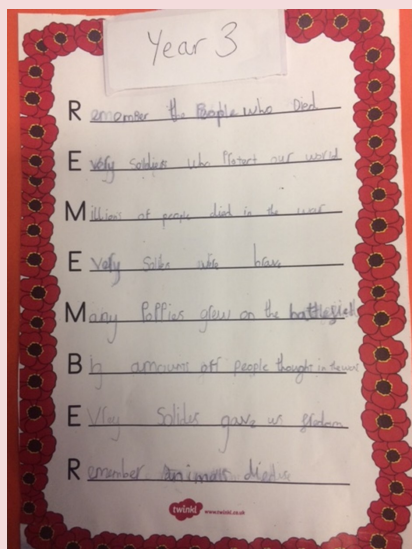 Year 3
Remember the People who Died
Every Soldiers who Protect our world
Millions of people died in the war
Every Soliter were brave
Many Poppies grew on the battlefield
amounts off people thought in the war
Evrey Soliter gave us
Remember animals
twinkl www.twinkl.co.uk